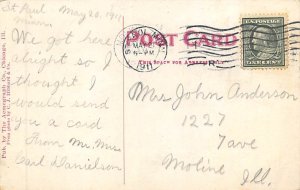 St Paul May 20, 1911
Minn
We got here
alright so I
thought I
would send
you a card
From Mr. Mrs
Carl Danielson
POST CARD
THIS SPACE FOR ADDRESS ONLY
MAY
1911
U.S. POSTAGE
ONE CENT
Mrs John Anderson
1227
7 ave
Moline
Ill.
Pub. by The Acmegraph Co., Chicago, Ill.